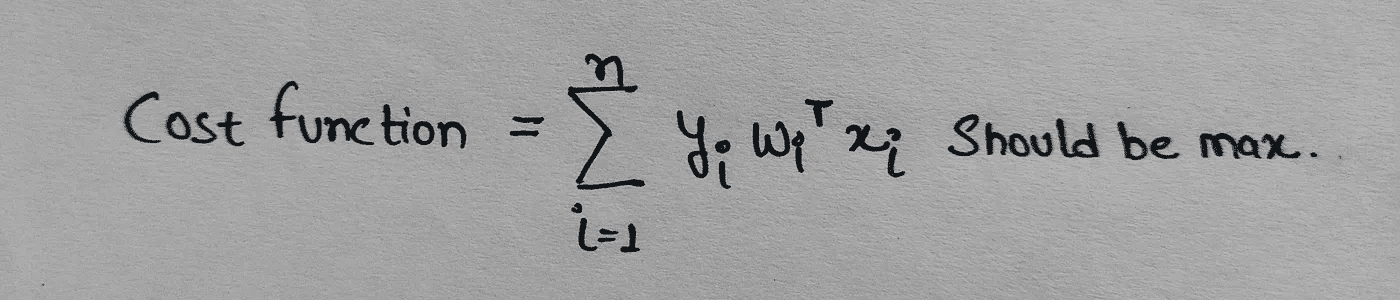 Cost function = \sum_{i=1}^{n} y_i w_i^T x_i Should be max.